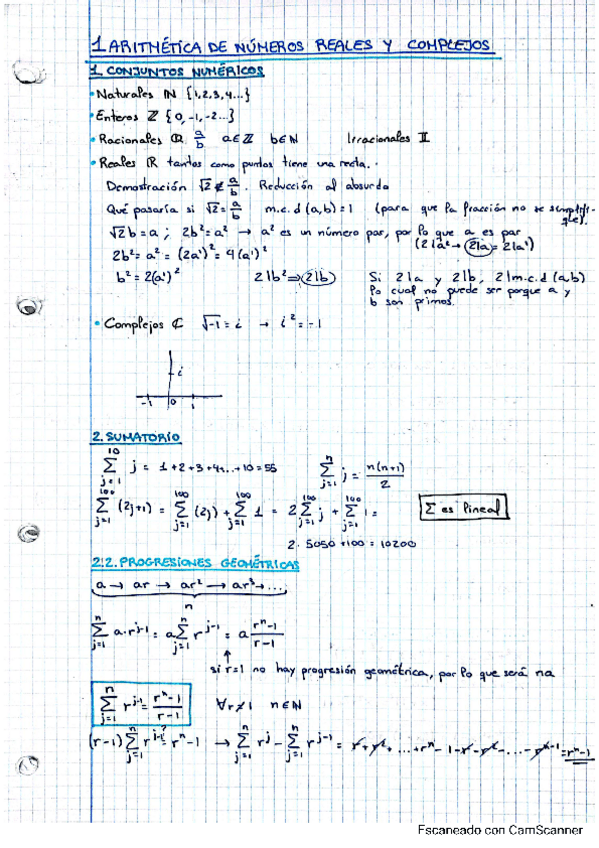 1 ARITMÉTICA DE NÚMEROS REALES Y COMPLEJOS
1. CONJUNTOS NUMÉRICOS
• Naturales ℕ {1,2,3,4...}
• Enteros ℤ {0,-1,-2...}
• Racionales ℚ a/b a∈ℤ b∈ℕ Irracionales 𝕀
• Reales ℝ tantos como puntos tiene una recta.
Demostración √2 ≠ a/b. Reducción al absurdo
Qué pasaría si √2 = a/b m.c.d (a,b)=1 (para que la fracción no se simplifique).
√2b = a ; 2b² = a² → a² es un número par, por lo que a es par
(2|a² → 2|a = 2|a')
2b² = a² = (2a')² = 4(a')²
b² = 2(a')² 2|b² ⇒ 2|b Si 2|a y 2|b, 2|m.c.d (a,b)
lo cual no puede ser porque a y
b son primos.
• Complejos ℂ √-1 = i → i² = -1
i
-1 0 1
2. SUMATORIO
∑_{j=1}^{10} j = 1+2+3+4...+10=55 ∑_{j=1}^{n} j = n(n+1)/2
∑_{j=1}^{100} (2j+1) = ∑_{j=1}^{100} (2j) + ∑_{j=1}^{100} 1 = 2 ∑_{j=1}^{100} j + ∑_{j=1}^{100} 1 = ∑ es lineal
2. 5050 +100 = 10200
2.2. PROGRESIONES GEOMÉTRICAS
a → ar → ar² → ar³ → ...
n
∑_{j=1}^{n} a·r^{j-1} = a ∑_{j=1}^{n} r^{j-1} = a (rⁿ-1)/(r-1)
↑
si r=1 no hay progresión geométrica, por lo que será na
∑_{j=1}^{n} r^{j-1} = (rⁿ-1)/(r-1) ∀r≠1 n∈ℕ
(r-1) ∑_{j=1}^{n} r^{j-1} =? rⁿ-1 → ∑_{j=1}^{n} r^j - ∑_{j=1}^{n} r^{j-1} = r+r²+...+rⁿ-1-r-r²-...-r^{n-1} = rⁿ-1
Escaneado con CamScanner